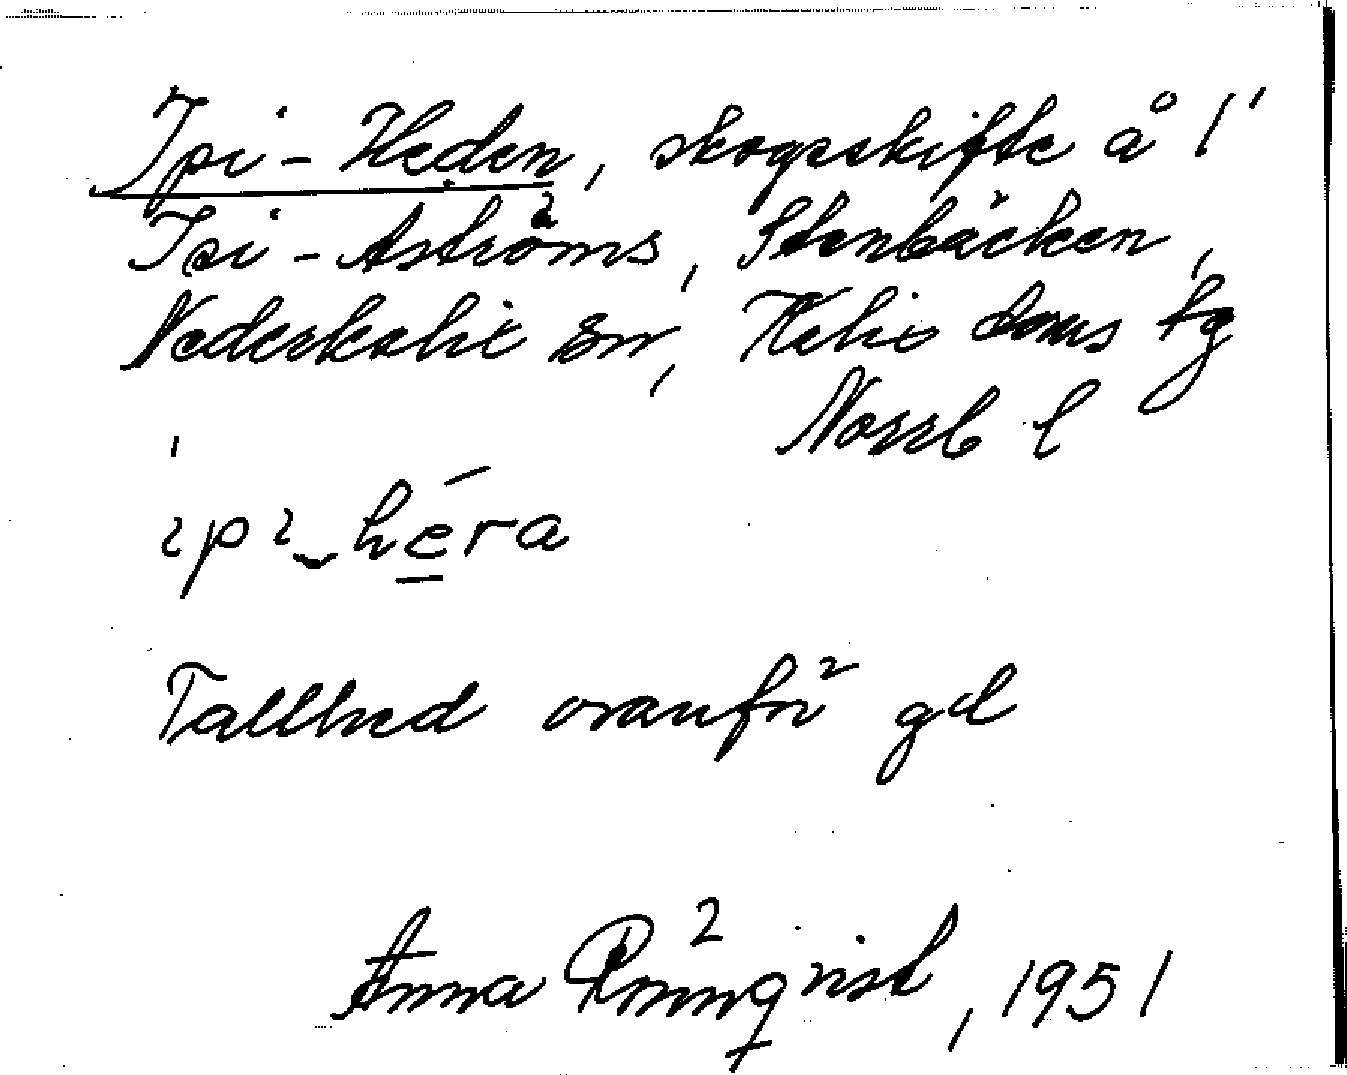 Ipi-Heden, skogsskifte å 1
Isi-Aströms, Stenbäcken,
Nederkalix sn, Kalix doms tg
Norrb l
ipi hera
Tallhed ovanför gd
Anna Rönnqvist, 1951